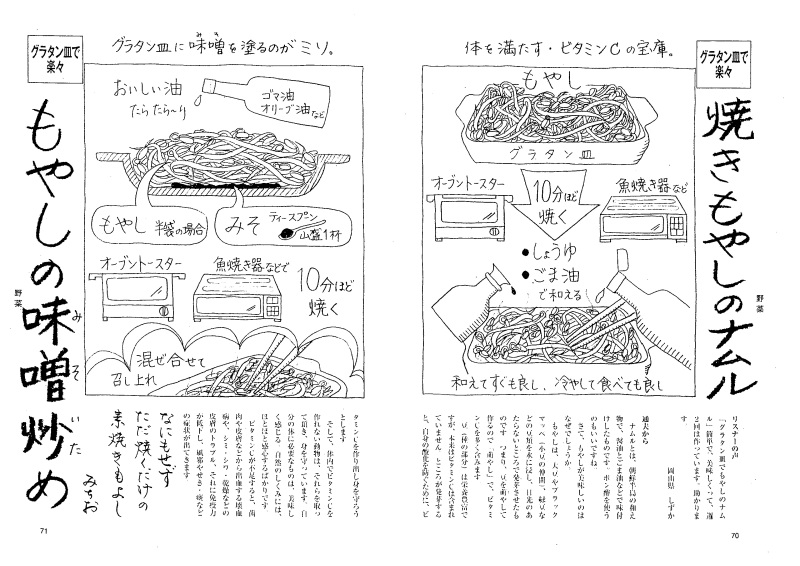 グラタン皿で
楽々
焼きもやしのナムル
野菜
体を満たす・ビタミンCの宝庫。
もやし
グラタン皿
オーブントースター
10分ほど
焼く
魚焼き器など
●しょうゆ
●ごま油
で和える
和えてすぐも良し、冷やして食べても良し
リスナーの声
「グラタン皿でもやしのナム
ル」簡単で、美味しくって、週
2回は作っています。助かりま
す
岡山県 しずか
道夫から
ナムルとは、朝鮮半島の和え
物で、醤油とごま油などで味付
けしたものです。ポン酢を使う
のもいいですね。
さて、もやしが美味しいのは
なぜでしょうか。
もやしは、大豆やブラック
マッペ（小豆の仲間）、緑豆な
どの豆類を水に浸し、日光のあ
たらないところで発芽させたも
のです。つまり、豆を萌やして
作るので「萌やし」で、ビタミ
ンCを多く含みます。
豆（種の部分）は栄養豊富で
すが、本来はビタミンCは含まれ
ていません。ところが発芽する
と、自身の酸化を防ぐために、ビ
70
グラタン皿で
楽々
もやしの味噌炒め
みそいた
野菜
グラタン皿に味噌を塗るのがミソ。
みそ
おいしい油
たらたら〜り
ゴマ油
オリーブ油など
もやし 半袋の場合
みそ ティースプーン
山盛1杯
オーブントースター
魚焼き器などで
10分ほど
焼く
混ぜ合せて
召し上れ
タミンCを作り出し身を守ろう
とします。
そして、体内でビタミンCを
作れない動物は、それらを取っ
て頂き、身を守っています。自
分の体に必要なものは、美味し
く感じる。自然のしくみには、
ほとほと感心するばかりです。
ビタミンCが不足すると、歯
肉や皮膚などから出血する壊血
病や、シミ・シワ・乾燥などの
皮膚のトラブル、それに免疫力
が低下し、風邪やせき・痰など
の症状が出てきます。
なにもせず
ただ焼くだけの
素焼きもよし
みちお
71